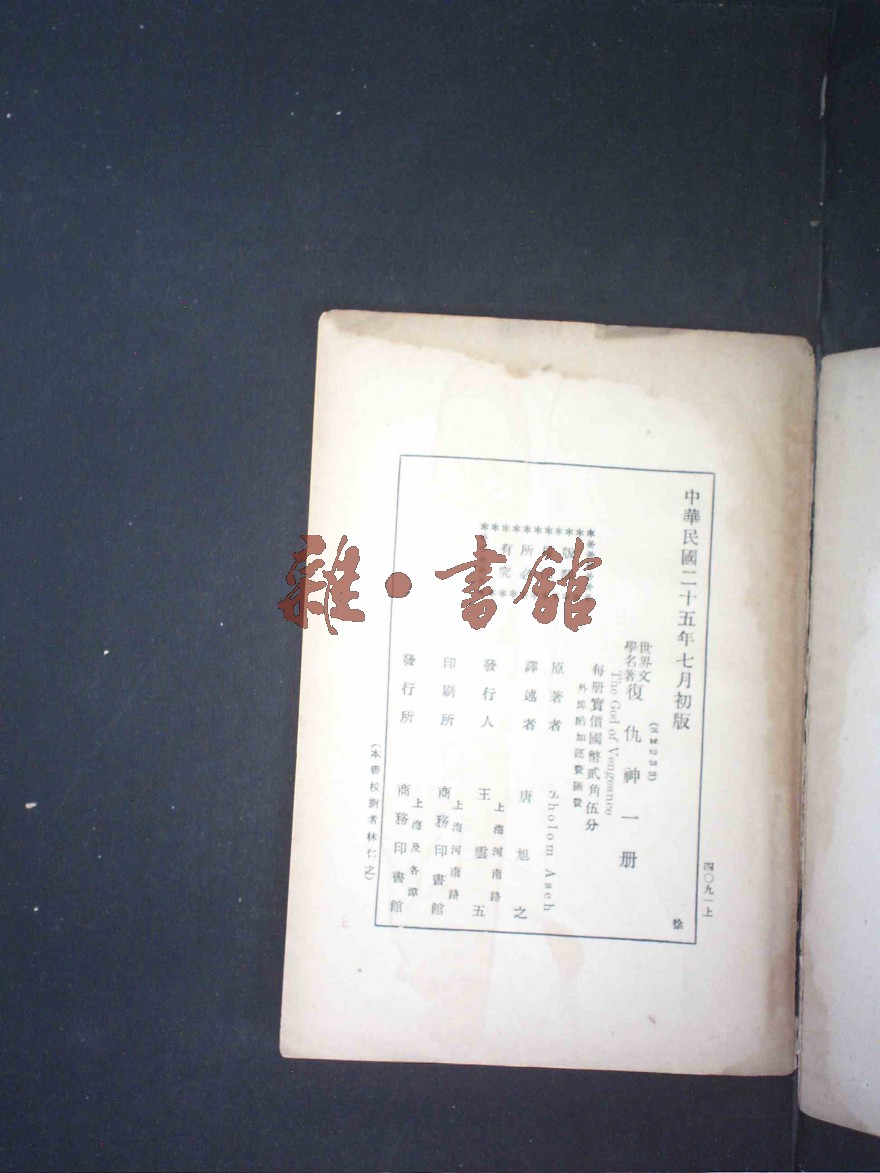 中華民國二十五年七月初版
四〇九一上
世界文學名著
復仇神一册
The God of Vengeance
每册實價國幣貳角伍分
外埠酌加運費匯費
原著者 Sholom Asch
譯述者 唐旭之
發行人 王雲五
上海河南路
印刷所 商務印書館
上海河南路
發行所 商務印書館
上海及各埠
版 所有
究
(本書校對者林仁之)
徐
雜·書館